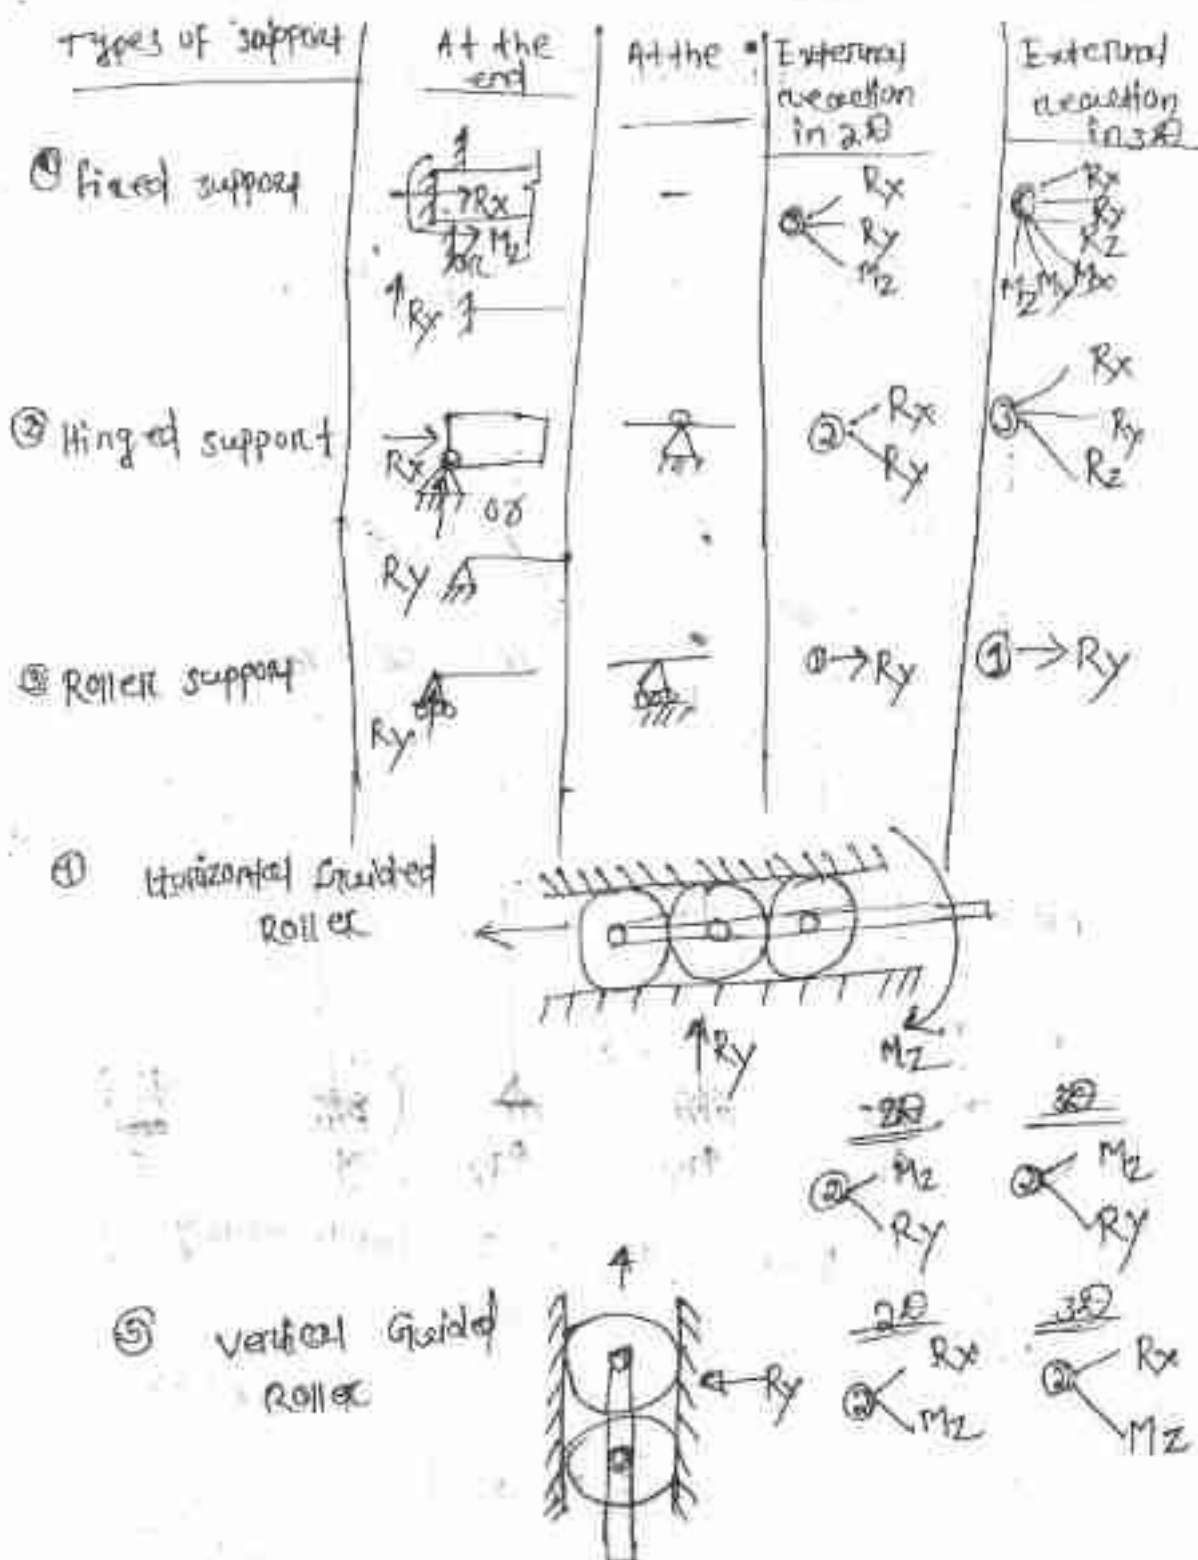 Types of support
At the end
At the
External reaction in 2D
External reaction in 3D
① fixed support
Rx
Mz
or
Ry
③ Rx
Ry
Mz
Rx
Ry
Rz
Mz My Mx
② Hinged support
Rx
or
Ry
② Rx
Ry
③ Rx
Ry
Rz
③ Roller support
Ry
① → Ry
① → Ry
④ Horizontal Guided
Roller
Ry
Mz
2D
3D
② Mz
Ry
② Mz
Ry
⑤ Vertical Guided
Roller
Ry
2D
3D
② Rx
Mz
② Rx
Mz